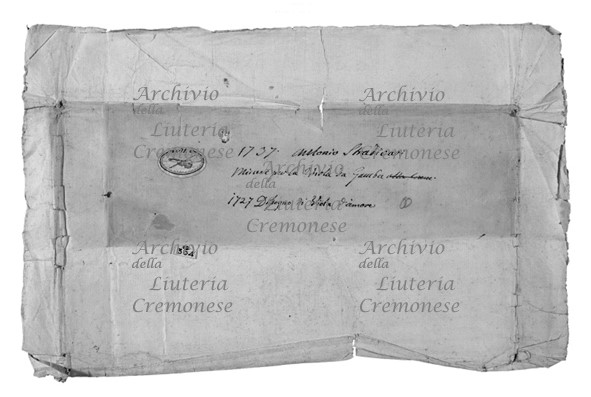 Archivio
della
Liuteria
Cremonese
Archivio
della
Liuteria
Cremonese
1737. Antonio
Misure per la Viola da gamba
Archivio
della
Liuteria
Cremonese
1727 Disegno di Viola d'amore
Archivio
della
Liuteria
Cremonese
Archivio
della
Liuteria
Cremonese